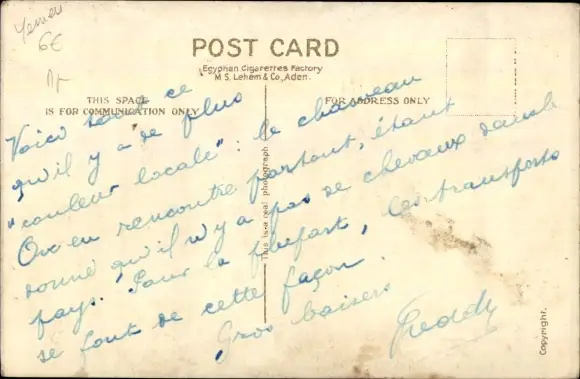 Yemen
6€
POST CARD
Egyptian Cigarettes Factory
M. S. Lehem & Co., Aden.
THIS SPACE
IS FOR COMMUNICATION ONLY
FOR ADDRESS ONLY
Voici tout ce
qu'il y a de plus
"couleur locale": le chameau
On en rencontre partout, étant
donné qu'il n'y a pas de chevaux dans le
pays. Pour la plupart, les transports
se font de cette façon.
Gros baisers
Freddy
This is a real photograph
Copyright.